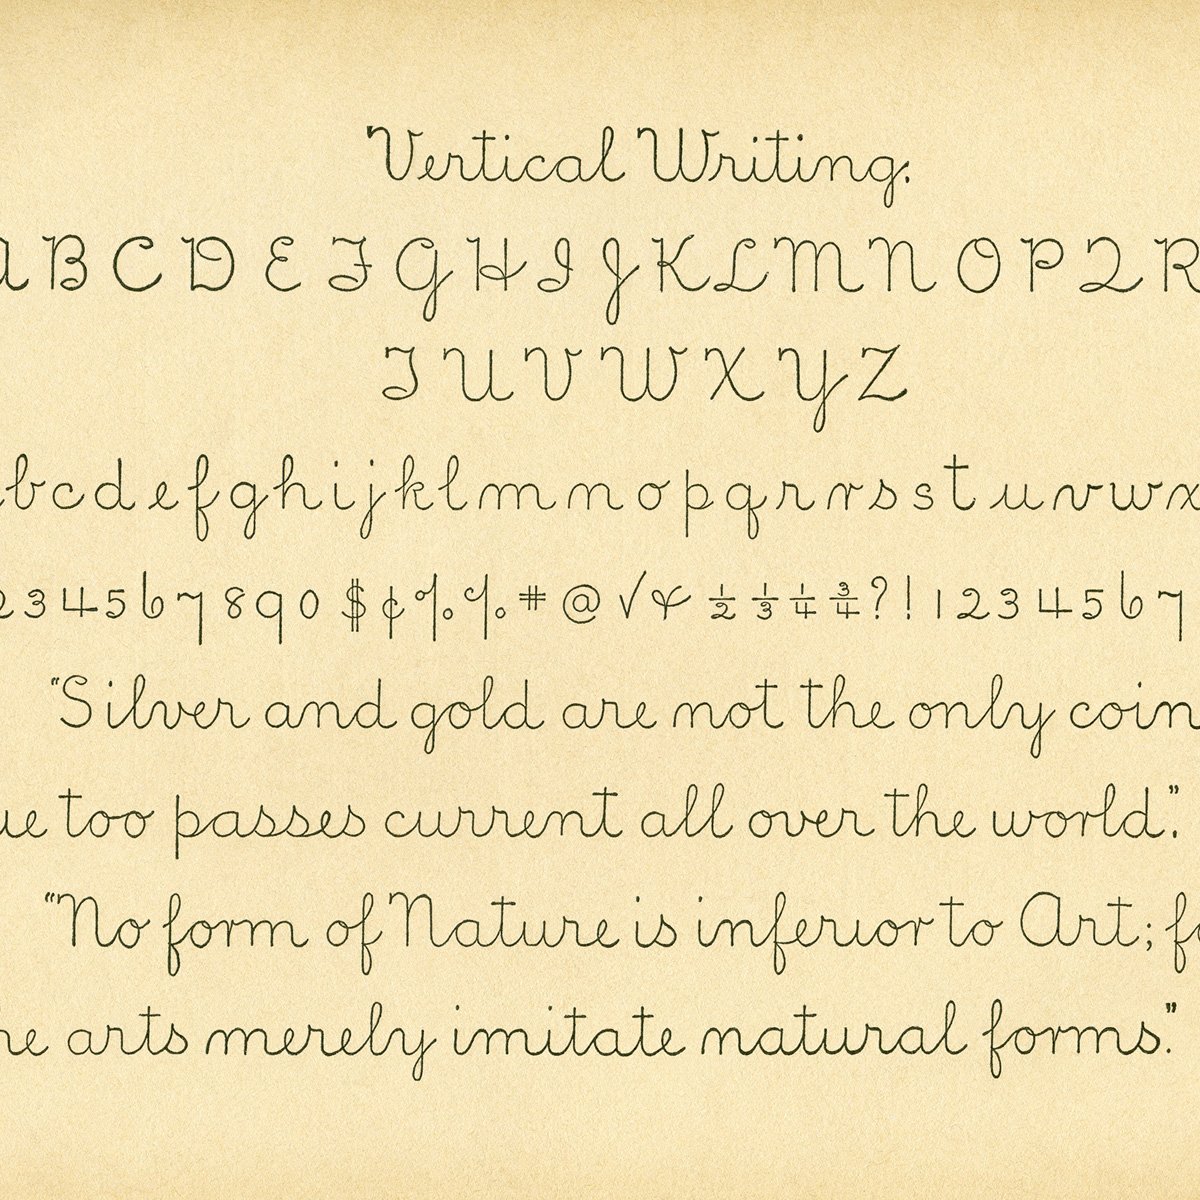 Vertical Writing.
A B C D E F G H I J K L M N O P Q R
T U V W X Y Z
b c d e f g h i j k l m n o p q r r s s t u v w x
2 3 4 5 6 7 8 9 0 $ ¢ % % # @ √ & ½ ⅓ ¼ ¾ ? ! 1 2 3 4 5 6 7
"Silver and gold are not the only coin
ue too passes current all over the world."
"No form of Nature is inferior to Art; fo
he arts merely imitate natural forms."